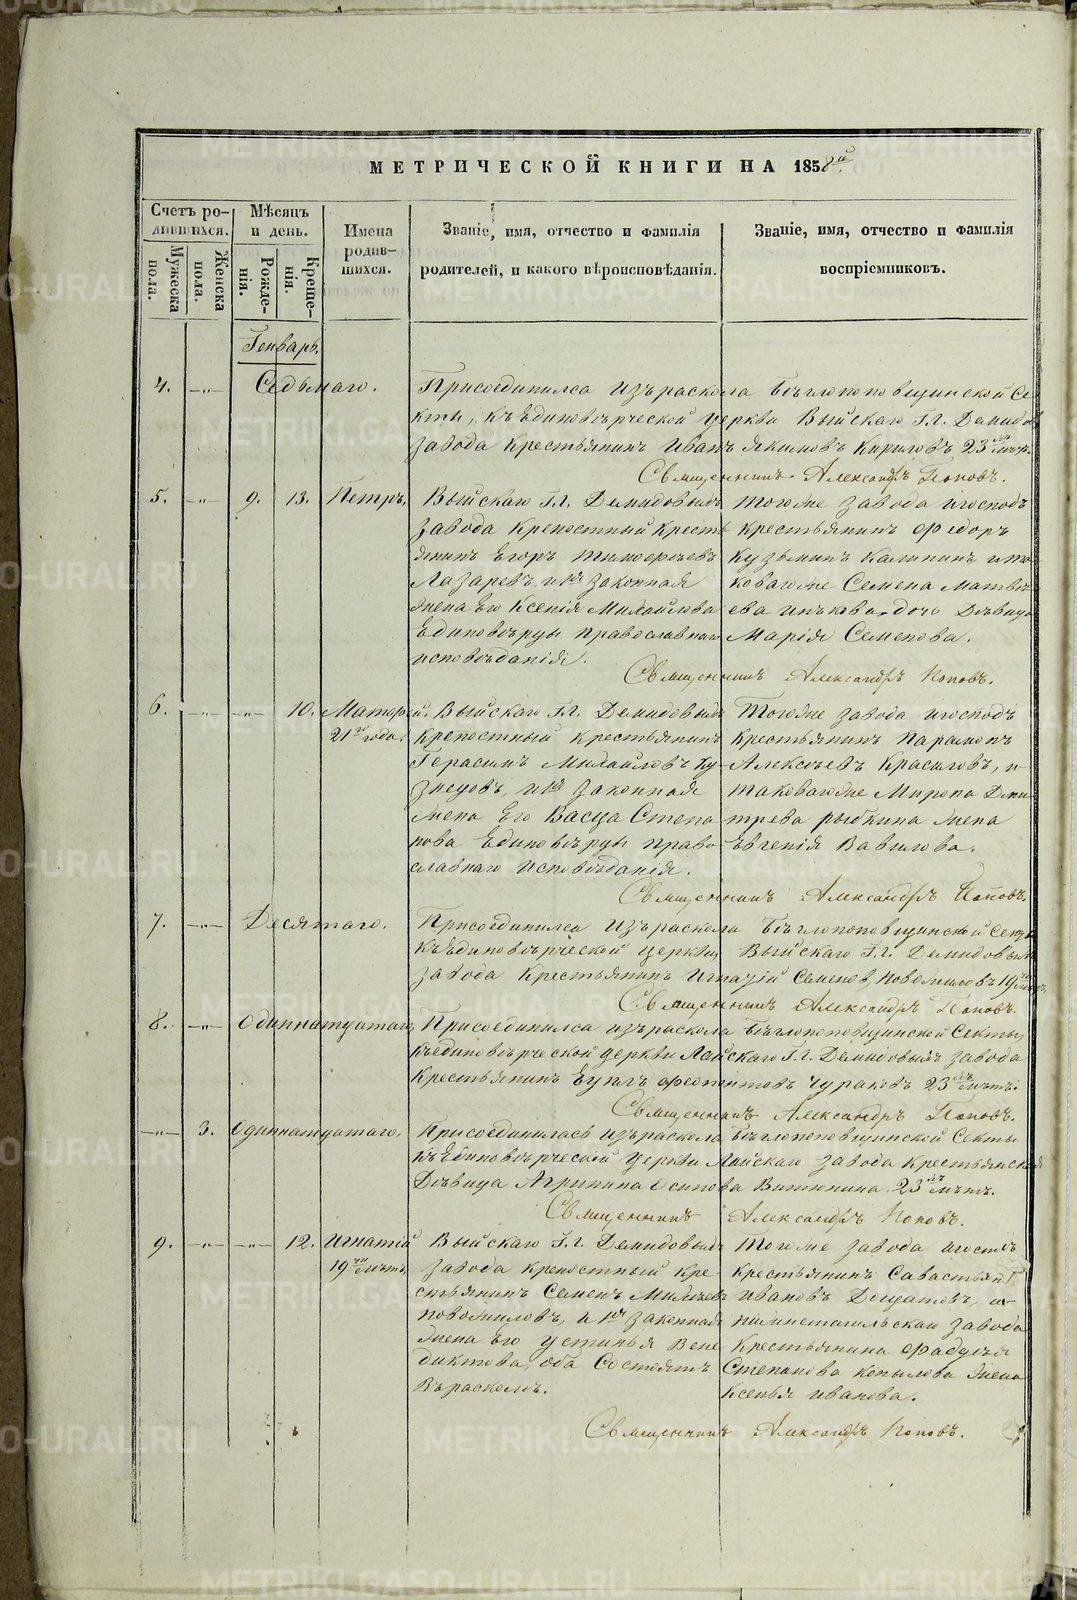 МЕТРИЧЕСКОЙ КНИГИ НА 1858й
Счетъ ро-
дившихся.
Мѣсяцъ
и день.
Имена
родив-
шихся.
Званіе, имя, отчество и фамилія
родителей, и какого вѣроисповѣданія.
Званіе, имя, отчество и фамилія
воспріемниковъ.
Мужеска
пола.
Женска
пола.
Рожде-
нія.
Креще-
нія.
Генварь.
4. -„- Седьмаго. Присоединился изъ раскола Бѣглопоповщинской Се
кты, къ Единовѣрческой церкви Выйскаго Г.г. Демидов
завода Крестьянинъ Иванъ Якимовъ Кириловъ 23 лѣтъ.
Священникъ Александръ Поповъ.
5. -„- 9. 13. Петръ,
Выйскаго Г.г. Демидовыхъ
завода крепостный кресть
янинъ Егоръ Тимофеевъ
Лазаревъ, и законная
жена Его Ксенія Михайлова
Единовѣрцы православнаго
исповѣданія.
Тогоже завода игосподъ
крестьянинъ Федоръ
Кузьминъ Калининъ ита
коваго же Семена Матвѣ
ева дочь Дѣвица
Марія Семенова.
Священникъ Александръ Поповъ.
6. -„- -„- 10.
21 го года.
Выйскаго Г.г. Демидовыхъ
крепостный крестьянинъ
Герасимъ Михайловъ Ку
знецовъ, и законная
жена Его Васса Степа
нова Единовѣрцы право
славнаго исповѣданія.
Тогоже завода игосподъ
крестьянинъ Парамонъ
Алексѣевъ Красиловъ, и
таковагоже Мирона Дми
трева рыбкина жена
Евгенія Вавилова.
Священникъ Александръ Поповъ.
7. -„- Десятаго. Присоединился Изъ раскола Бѣглопоповщинской Секты
къ Единовѣрческой церкви Выйскаго Г.г. Демидовыхъ
завода Крестьянинъ Игнатій Семеновъ Новожиловъ 19 лѣтъ,
Священникъ Александръ Поповъ.
8. -„- Одиннатцатаго, Присоединился изъ раскола Бѣглопоповщинской Секты
къ единовѣрческой церкви Лайскаго Г.г. Демидовыхъ завода
Крестьянинъ Евплъ Чураковъ 23 лѣтъ.
Священникъ Александръ Поповъ.
-„- 3. Одиннатцатаго. Присоединилась изъ раскола Бѣглопоповщинской Секты
къ Единовѣрческой церкви Лайскаго завода Крестьянская
Дѣвица Агрипина Осипова 23 лѣтъ.
Священникъ Александръ Поповъ.
9. -„- -„- 12. Игнатій
19 лѣтъ,
Выйскаго Г.г. Демидовыхъ
завода крепостный кре
стьянинъ Семенъ Михѣевъ
новожиловъ, и законная
жена Его Устинья Вене
диктова, оба Состоятъ
Въ расколѣ.
Тогоже завода
крестьянинъ Савастьян
Ивановъ и
нижнетагильскаго завода
Крестьянина Фаддѣя
Степанова копылова жена
Ксенья Иванова.
Священникъ Александръ Поповъ.
METRIKI.GASO-URAL.RU